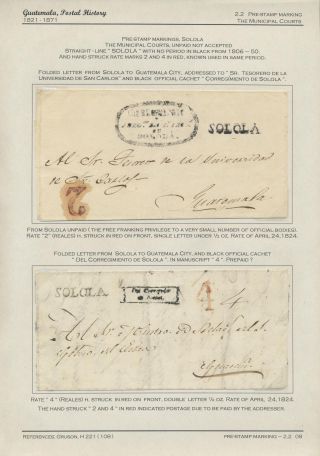 Guatemala, Postal History
1821-1871
2.2 Pre-stamp marking
The Municipal Courts
Pre-stamp markings, Solola
The Municipal Courts, unpaid not accepted
Straight-line "SOLOLA" with no period in black from 1806 – 50.
and hand struck rate marks 2 and 4 in red, known used in same period.
Folded letter from Solola to Guatemala City, addressed to "Sr. Tesorero de la
Universidad de San Carlos" and black official cachet "Corregimiento de Solola".
SOLOLA
SOLOLA
Al Sr. de la Universidad
de Sn. Carlos
2
Guatemala
From Solola unpaid (the free franking privilege to a very small number of official bodies).
Rate "2" (reales) h. struck in red on front, single letter under ½ oz. Rate of April 24, 1824.
Folded letter from Solola to Guatemala City, and black official cachet
"Del Corregimiento de Solola". In manuscript "4". Prepaid?
SOLOLA
Del Corregido
4
4
Al Sr.
Rate "4" (reales) h. struck in red on front, double letter ½ oz. Rate of April 24, 1824.
The hand struck "2 and 4" in red indicated postage due to be paid by the addresser.
References: Gruson, H 221 (108)
Pre-stamp marking – 2.2 08